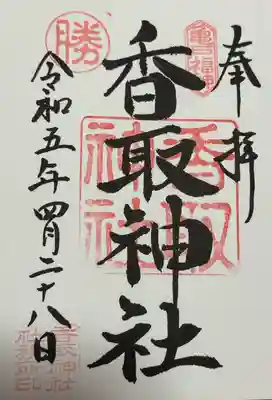 奉拝
香取神社
香取神社
勝
令和五年四月二十八日